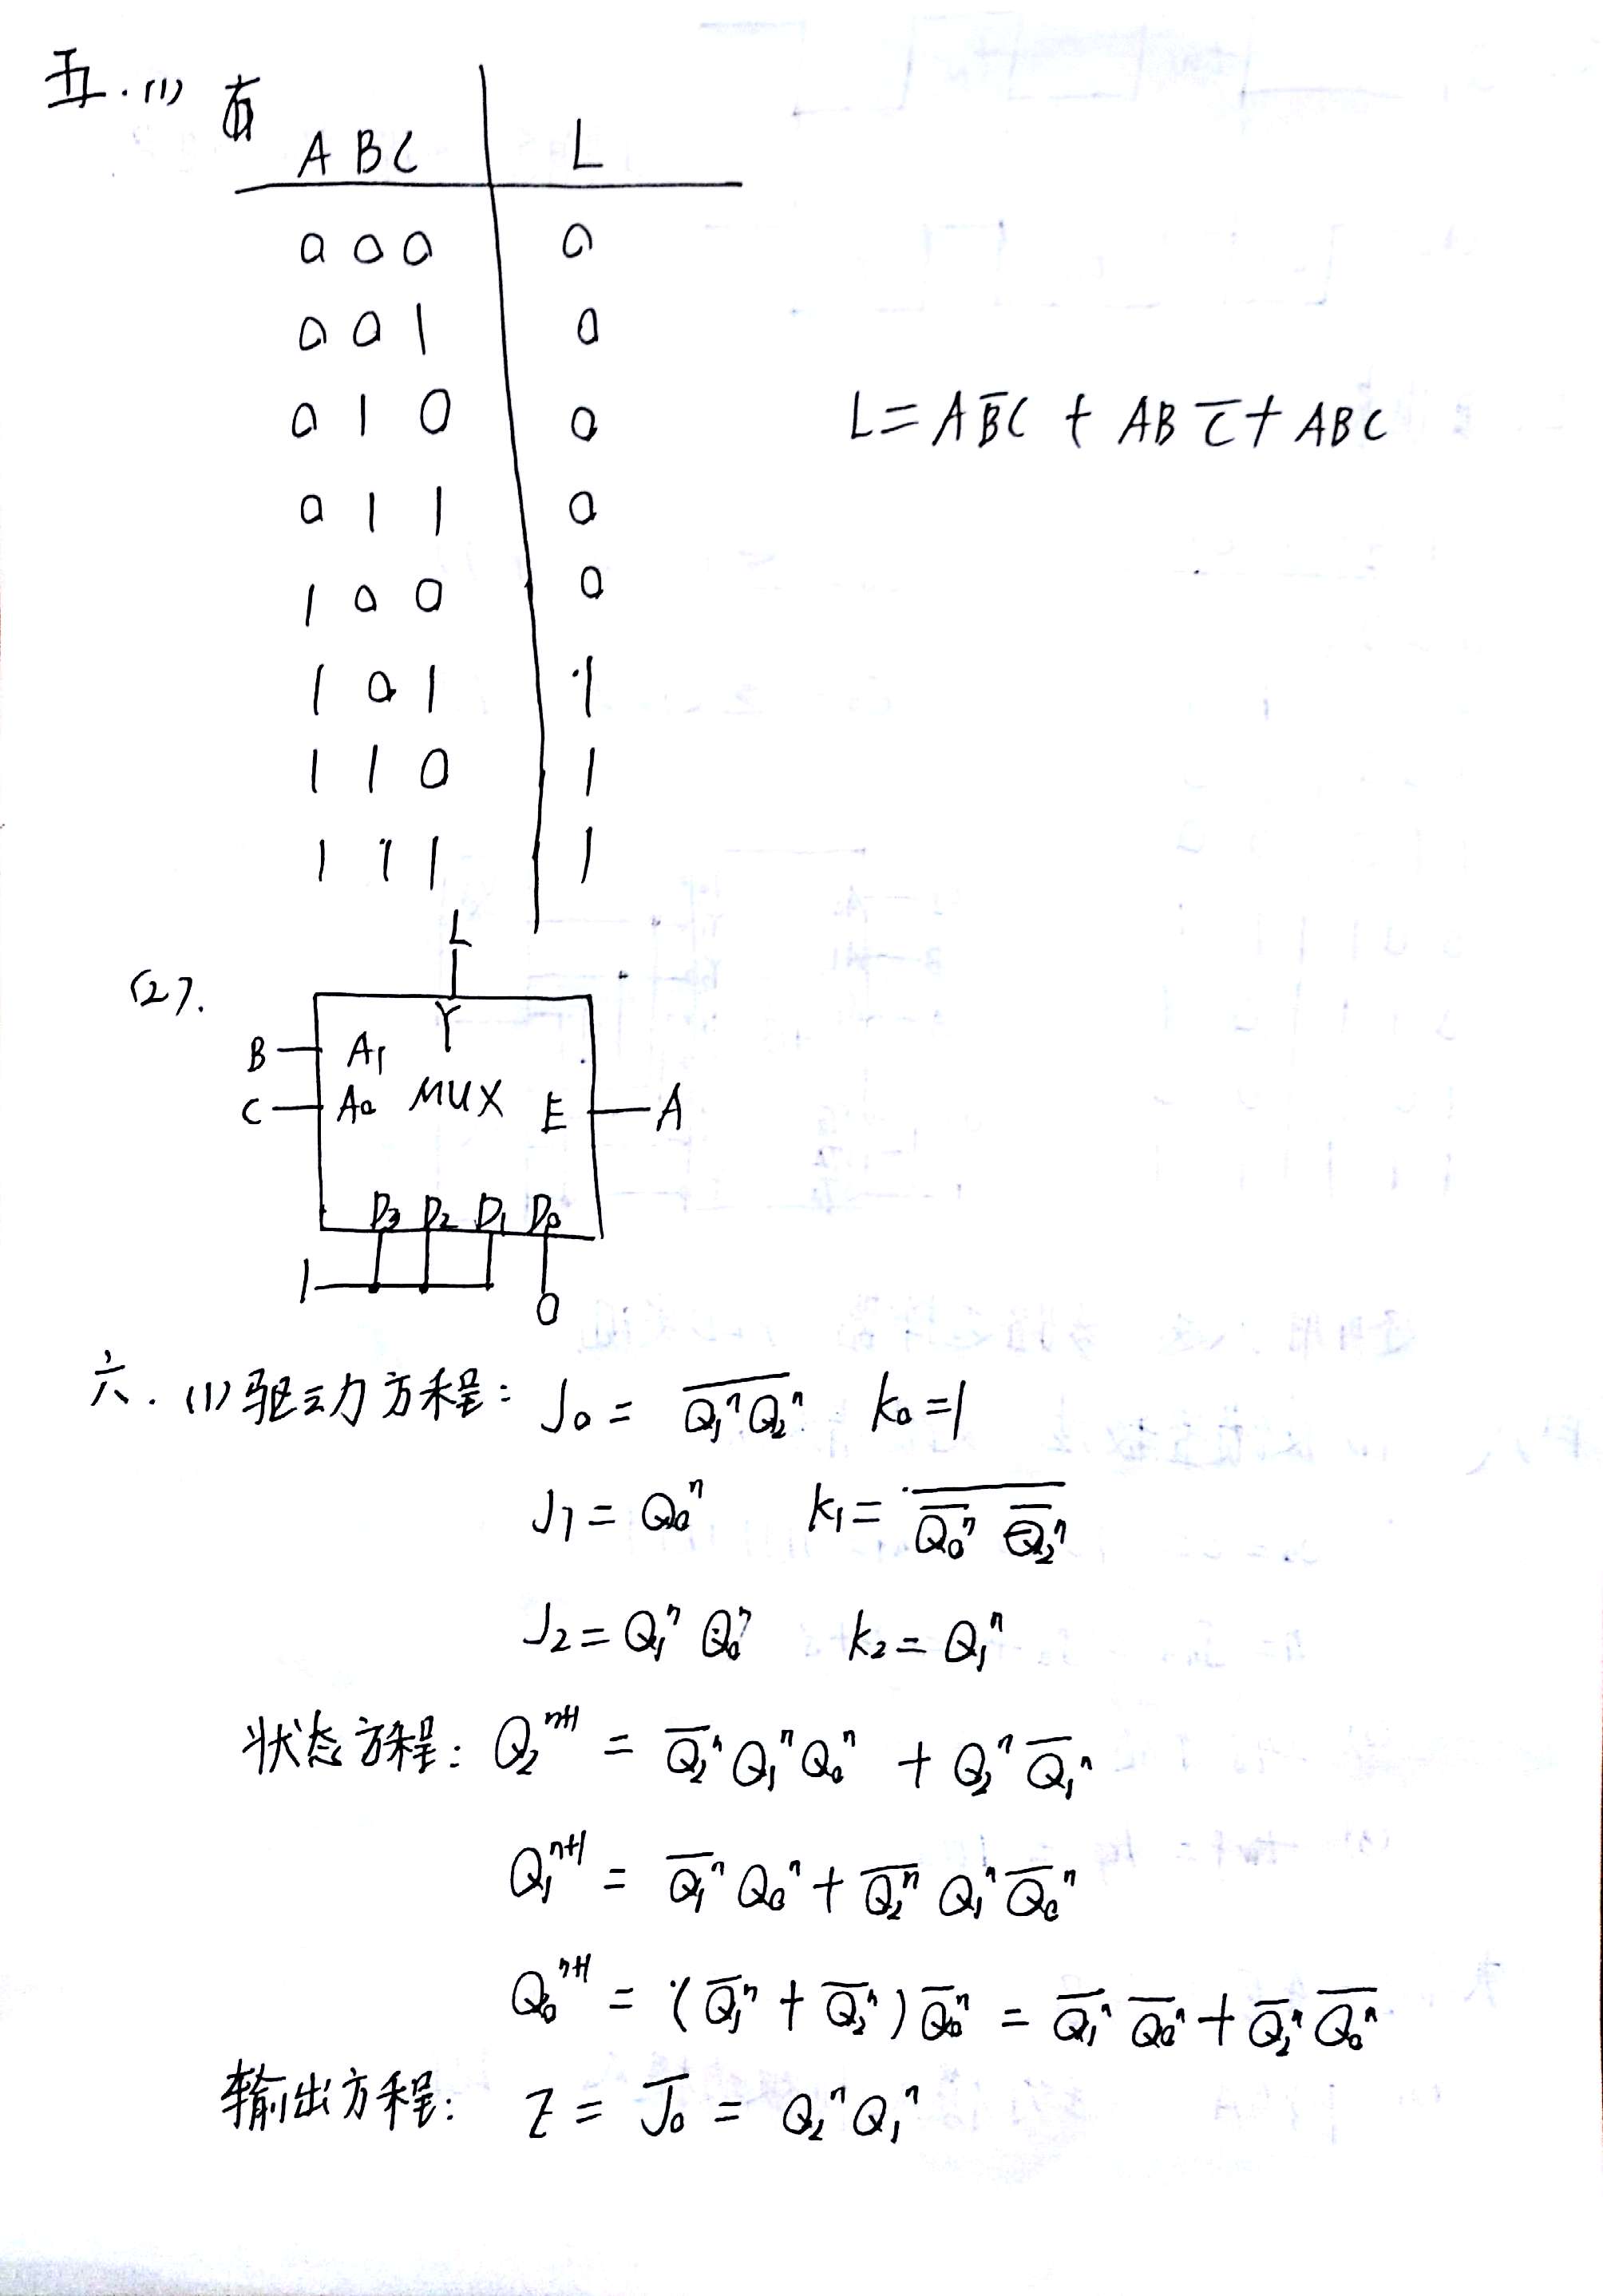 五.(1)
A B C L
0 0 0 0
0 0 1 0
0 1 0 0
0 1 1 0
1 0 0 0
1 0 1 1
1 1 0 1
1 1 1 1
L = AB̅C + ABC̅ + ABC
(2).
L
Y
B A₁
C A₀ MUX E A
D₃ D₂ D₁ D₀
1
0
六.(1)驱动方程: J₀ = \overline{Q₁ⁿQ₂ⁿ} k₀=1
J₁ = Q₀ⁿ k₁ = \overline{\overline{Q₀ⁿ} \overline{Q₂ⁿ}}
J₂ = Q₁ⁿ Q₀ⁿ k₂ = Q₁ⁿ
状态方程: Q₂ⁿ⁺¹ = \overline{Q₂}ⁿ Q₁ⁿ Q₀ⁿ + Q₂ⁿ \overline{Q₁}ⁿ
Q₁ⁿ⁺¹ = \overline{Q₁}ⁿ Q₀ⁿ + \overline{Q₂ⁿ} Q₁ⁿ \overline{Q₀}ⁿ
Q₀ⁿ⁺¹ = (\overline{Q₁}ⁿ + \overline{Q₂}ⁿ) \overline{Q₀}ⁿ = \overline{Q₁}ⁿ \overline{Q₀}ⁿ + \overline{Q₂}ⁿ \overline{Q₀ⁿ}
输出方程: Z = \overline{J₀} = Q₂ⁿ Q₁ⁿ